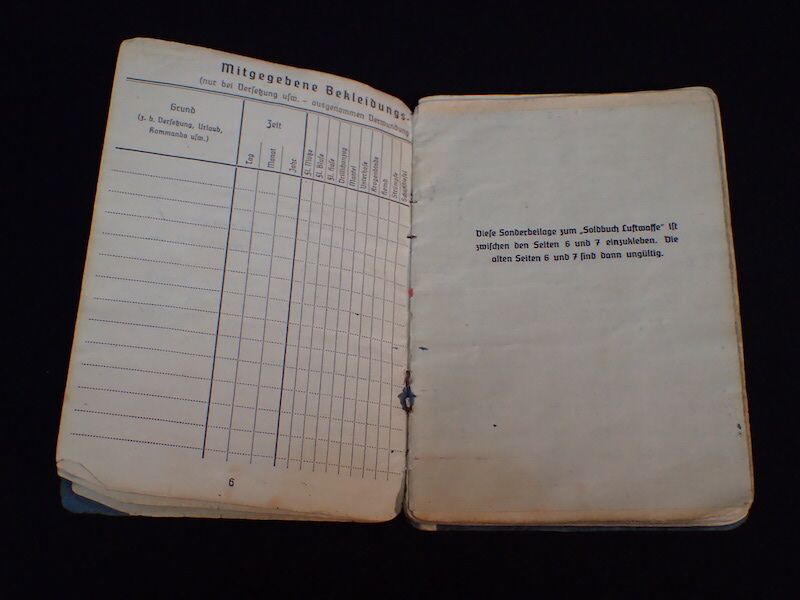 Mitgegebene Bekleidungs-
(nur bei Versetzung usw. - ausgenommen Verwundung
Grund
(z. b. Versetzung, Urlaub,
Kommando usw.)
Zeit
Tag
Monat
Jahr
Fl. Mütze
Fl. Bluse
Fl. Hose
Drillichanzug
Mantel
Unterhose
Kragenbinde
Hemd
Strümpfe
Schaftstiefel
6
Diese Sonderbeilage zum „Soldbuch Luftwaffe" ist
zwischen den Seiten 6 und 7 einzukleben. Die
alten Seiten 6 und 7 sind dann ungültig.